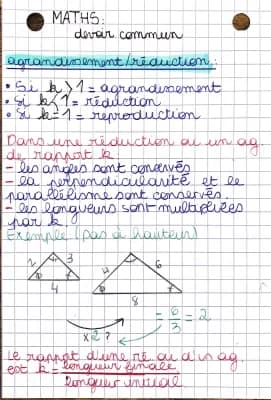 MATHS:
devoir commun
agrandissement/réduction:
• Si k > 1 = agrandissement
• Si k < 1 = réduction
• Si k = 1 = reproduction
Dans une réduction ou un ag.
de rapport k
- les angles sont conservés
- la perpendicularité et le
parallélisme sont conservés.
- les longueurs sont multipliées
par k.
Exemple (pas à hauteur)
2 3 4
4 6 8
x 2 ?
= 6/3 = 2
Le rapport d'une ré. ou d'un ag.
est k = longueur finale
longueur initial.